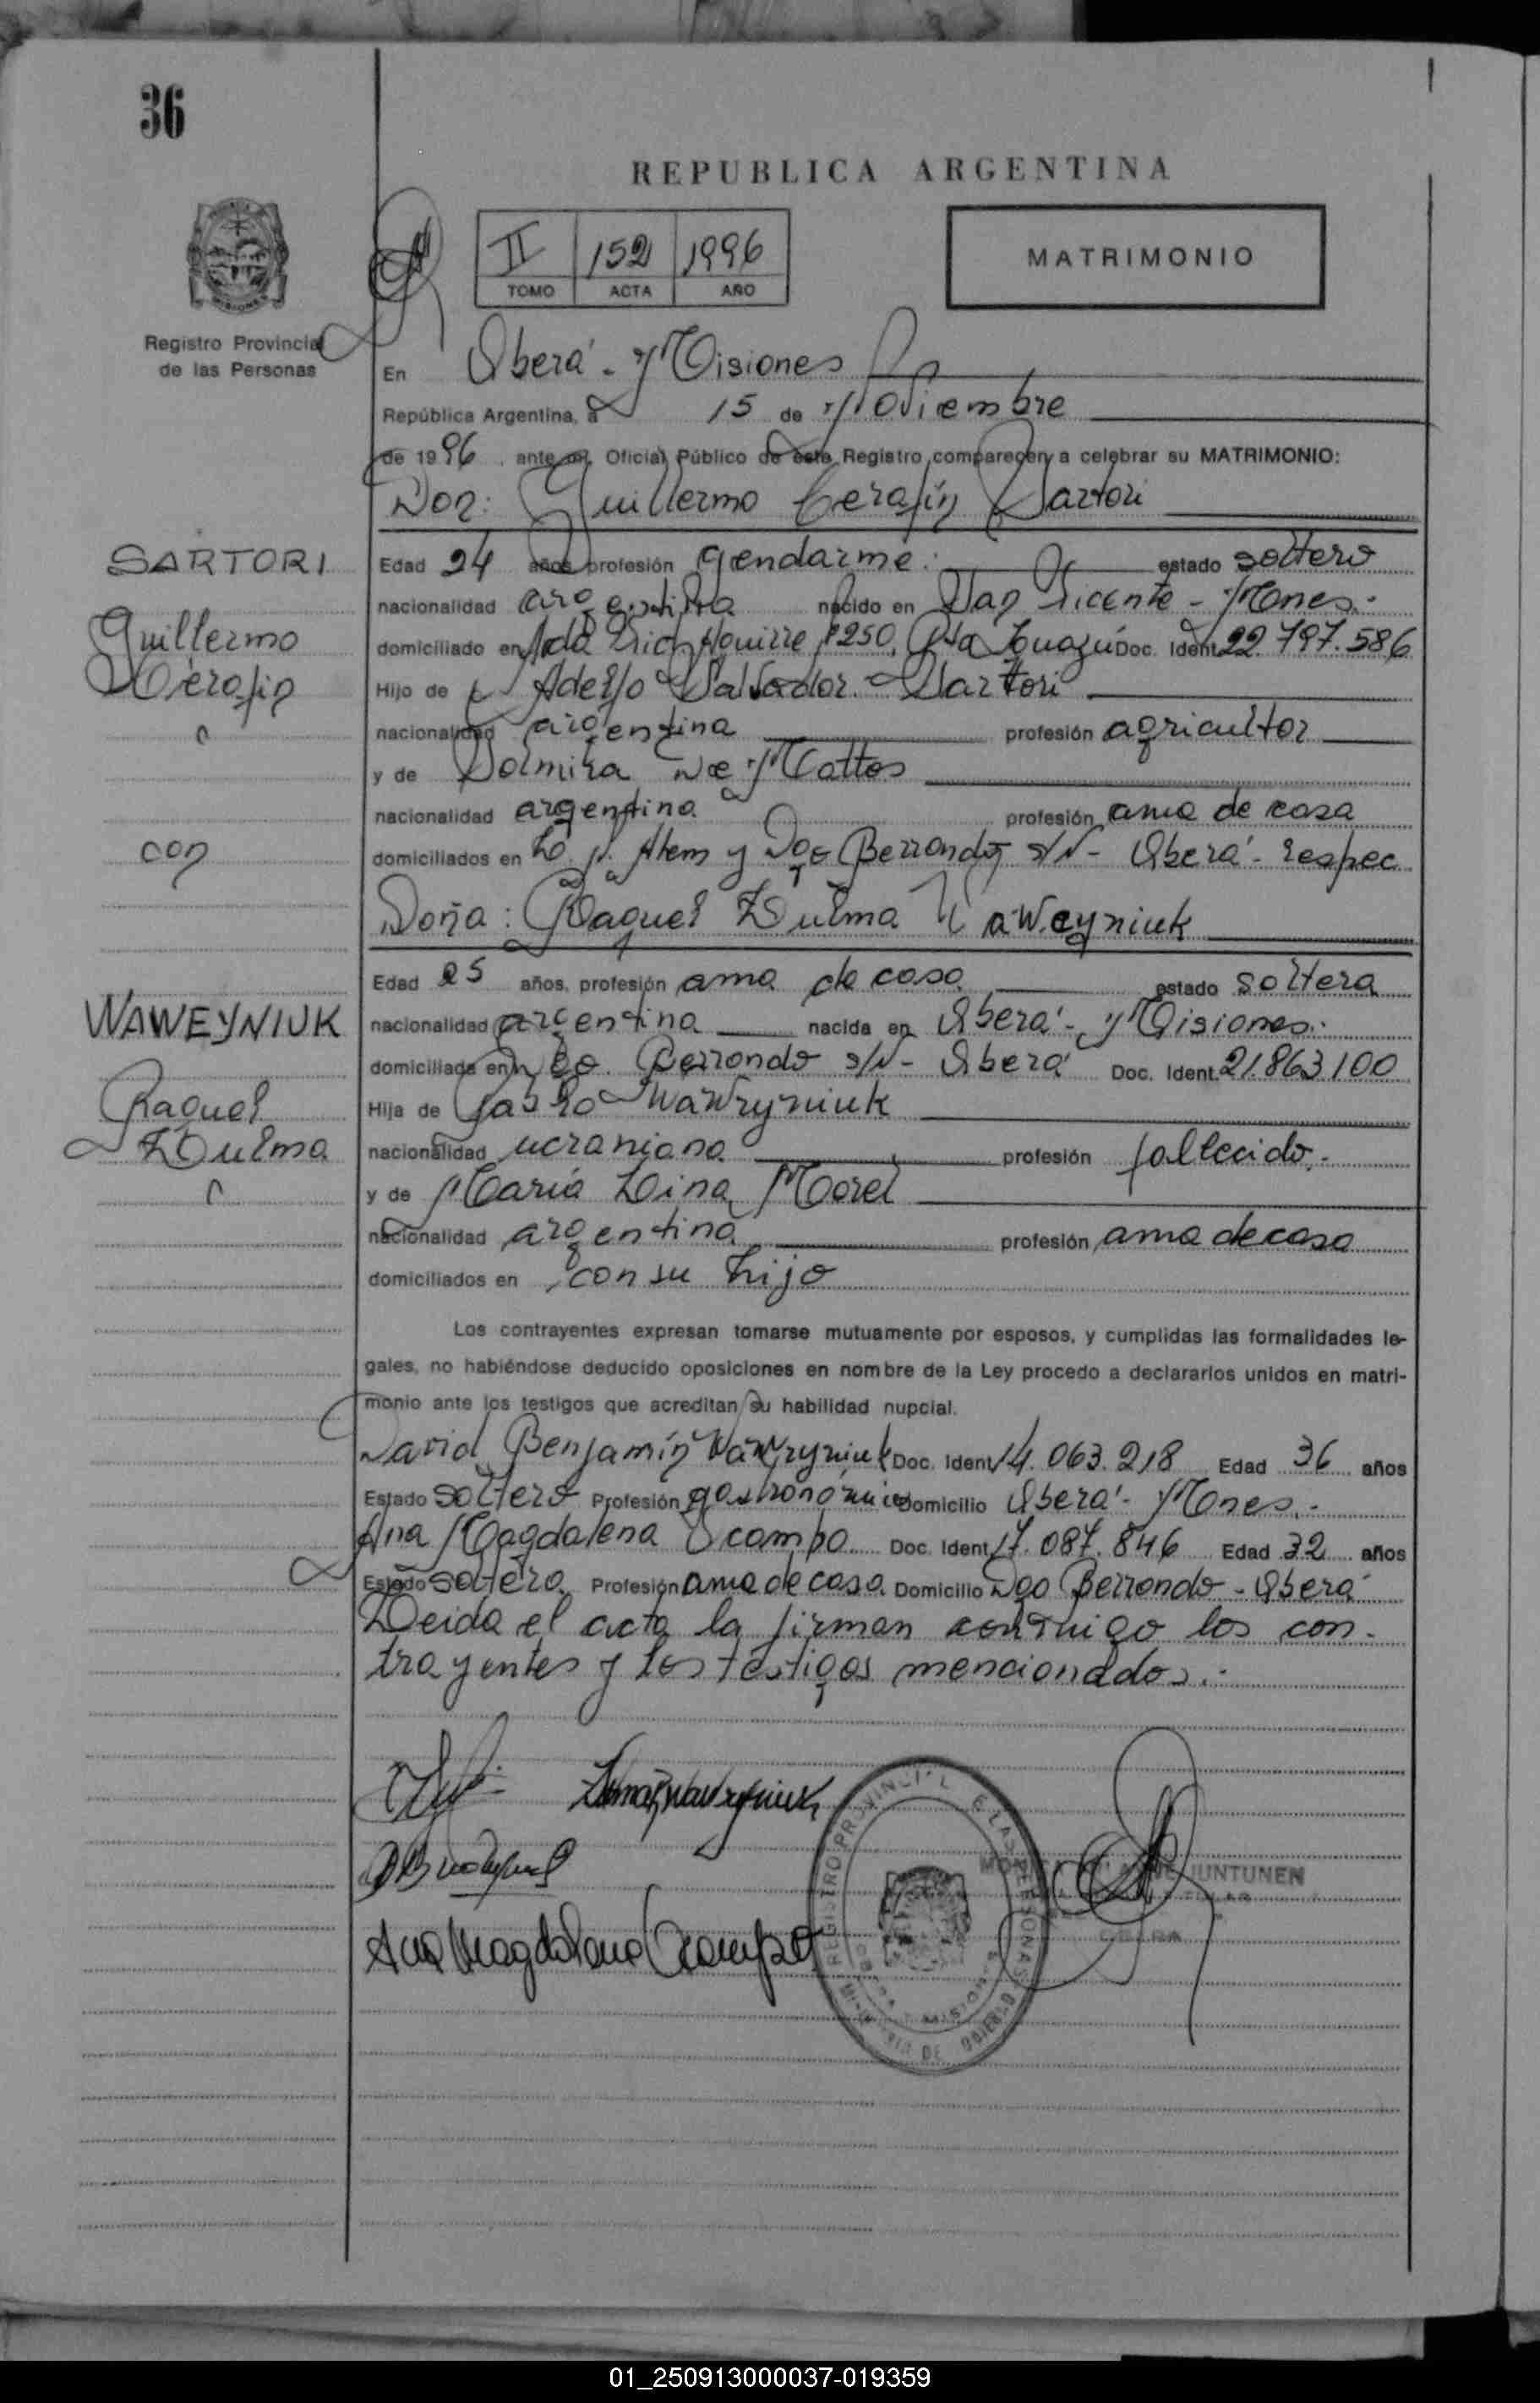 36
REPUBLICA ARGENTINA
II 152 1996
TOMO ACTA AÑO
MATRIMONIO
Registro Provincial
de las Personas
En Oberá - Misiones
República Argentina, a 15 de Noviembre
de 1996, ante mí, Oficial Público de este Registro, comparecen a celebrar su MATRIMONIO:
Don: Guillermo Serafín Sartori
SARTORI
Guillermo
Serafín
con
WAWEYNIUK
Raquel
Zulma
Edad 24 años, profesión gendarme: estado soltero
nacionalidad argentina nacido en San Vicente - Mnes.-
domiciliado en Avda Aguirre 1250, Pto Iguazú Doc. Ident. 22.797.586
Hijo de Adelfo Salvador Sartori
nacionalidad argentina profesión agricultor
y de Dolmira De Mattos
nacionalidad argentina profesión ama de casa
domiciliados en L. N. Alem y Dgo Berrondo s/N - Oberá - respec
Doña: Raquel Zulma Waweyniuk
Edad 25 años, profesión ama de casa estado soltera
nacionalidad argentina nacida en Oberá - Misiones.-
domiciliada en Berrondo s/N - Oberá Doc. Ident. 21.863.100
Hija de Pablo Wawryniuk
nacionalidad ucraniana profesión fallecido.-
y de María Lina Morel
nacionalidad argentina profesión ama de casa
domiciliados en con su hijo
Los contrayentes expresan tomarse mutuamente por esposos, y cumplidas las formalidades le-
gales, no habiéndose deducido oposiciones en nombre de la Ley procedo a declararlos unidos en matri-
monio ante los testigos que acreditan su habilidad nupcial.
David Benjamín Wawryniuk Doc. Ident. 14.063.218 Edad 36 años
Estado soltero Profesión gastronómico Domicilio Oberá - Mnes.-
Ana Magdalena Ocampo Doc. Ident. 17.087.846 Edad 32 años
Estado soltera Profesión ama de casa Domicilio Dgo Berrondo - Oberá
Leida el acta la firman conmigo los con-
trayentes y los testigos mencionados.-
Ana Magdalena Ocampo
REGISTRO PROVINCIAL DE LAS PERSONAS
JUNTUNEN
OBERA
01_250913000037-019359